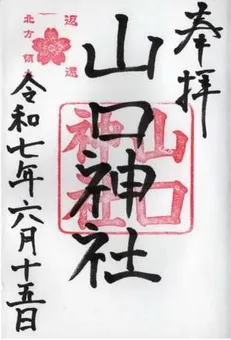 奉拝
山口神社
山口
神社
返還
北方領
令和七年六月十五日